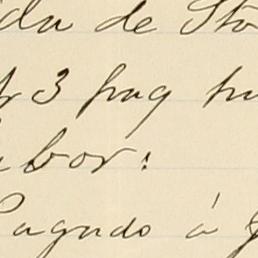 da de Sto
3 pag
bor:
Pagado á